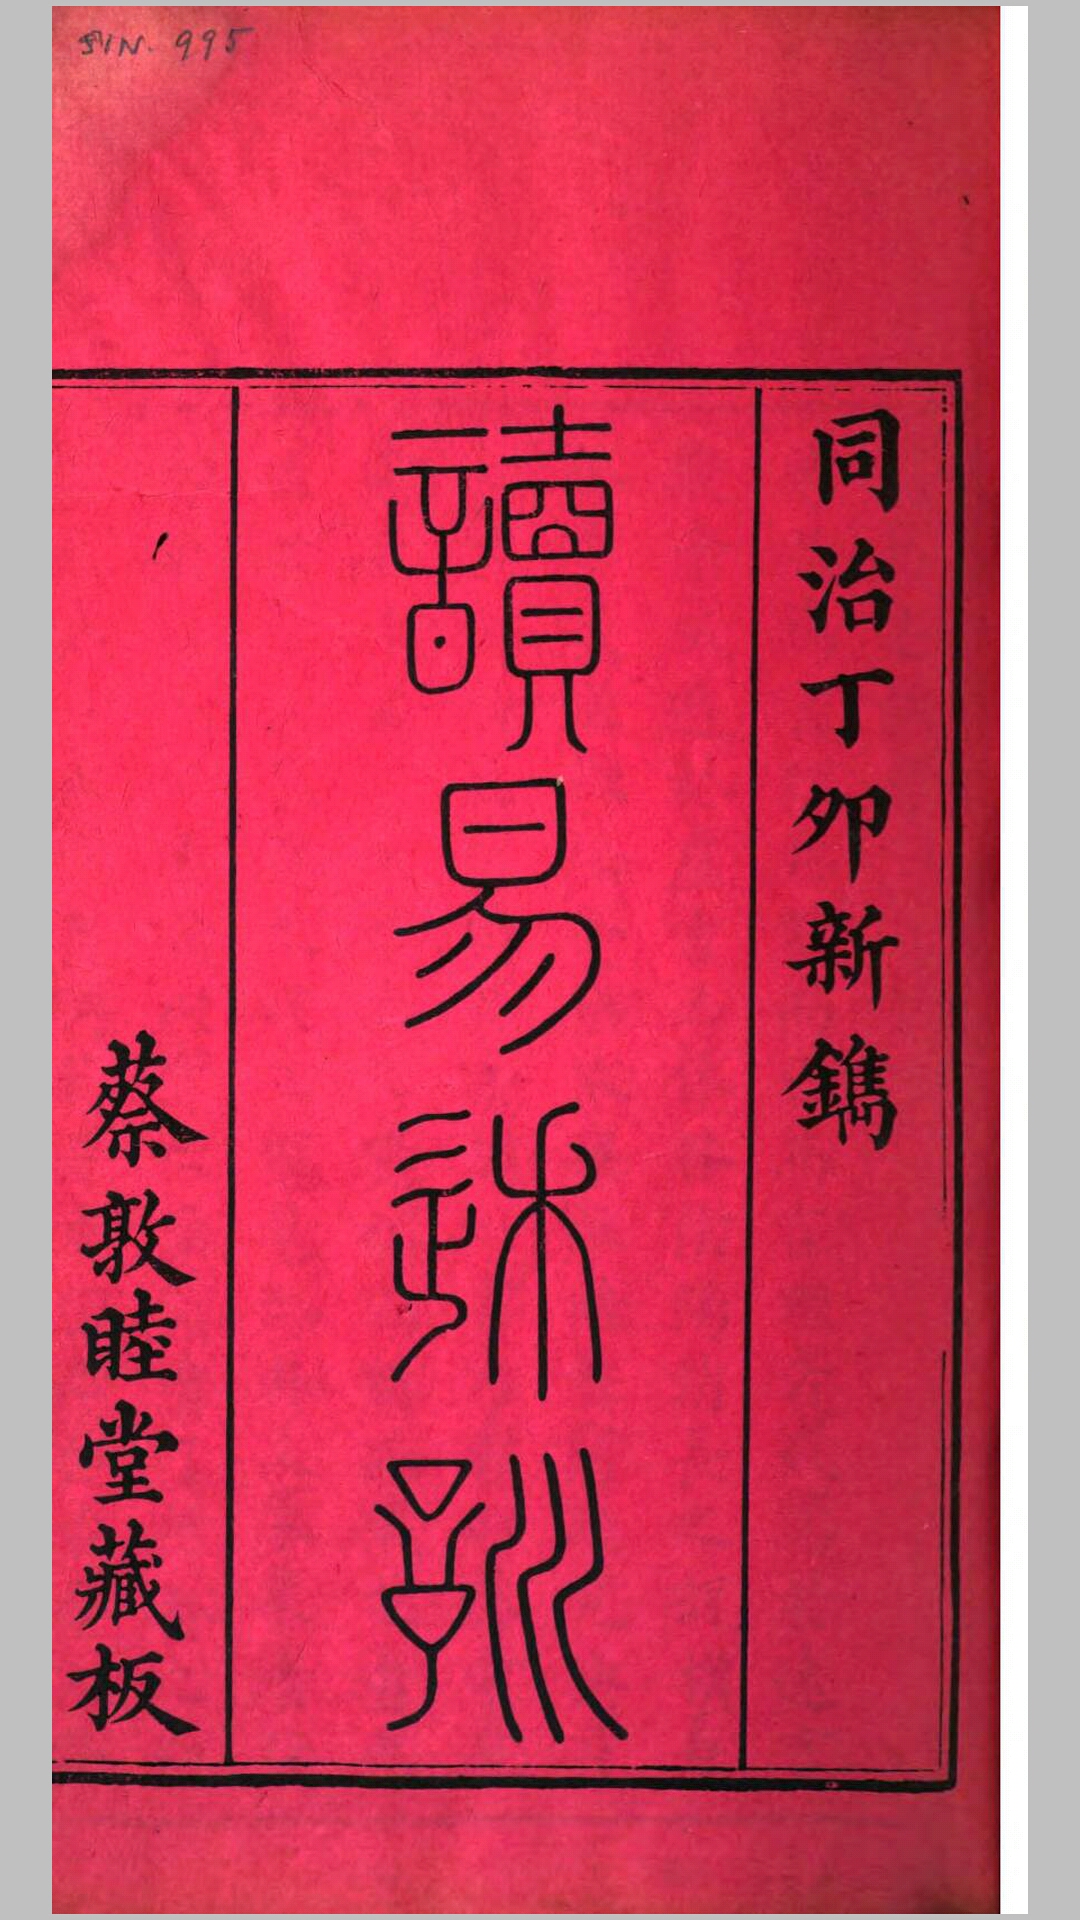 SIN. 995
同治丁卯新鐫
讀易述訓
蔡敦睦堂藏板